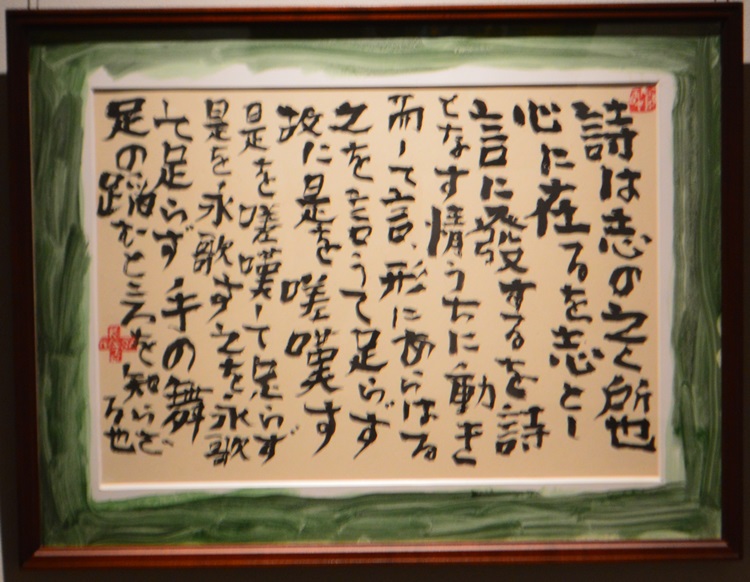 詩は志の之く所也
心に在るを志とし
言に發するを詩
となす情うちに動き
而して言、形にあらはる
之を言うて足らず
故に是を嗟嘆す
是を嗟嘆して足らず
是を永歌す之を永歌
して足らず手の舞
足の蹈むところを知らざる也